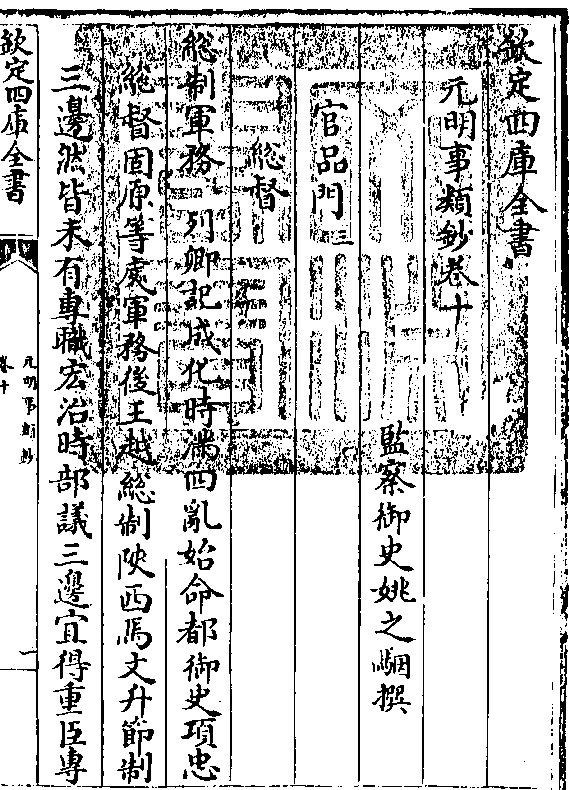 欽定四庫全書
元明事類鈔卷十
監察御史姚之駰撰
官品門三
總督
總制軍務 列卿記成化時滿四亂始命都御史項忠
總督固原等處軍務後王越總制陜西馬文升節制
三邊然皆未有專職宏治時部議三邊宜得重臣專
欽定四庫全書
元明事類鈔
卷十
一